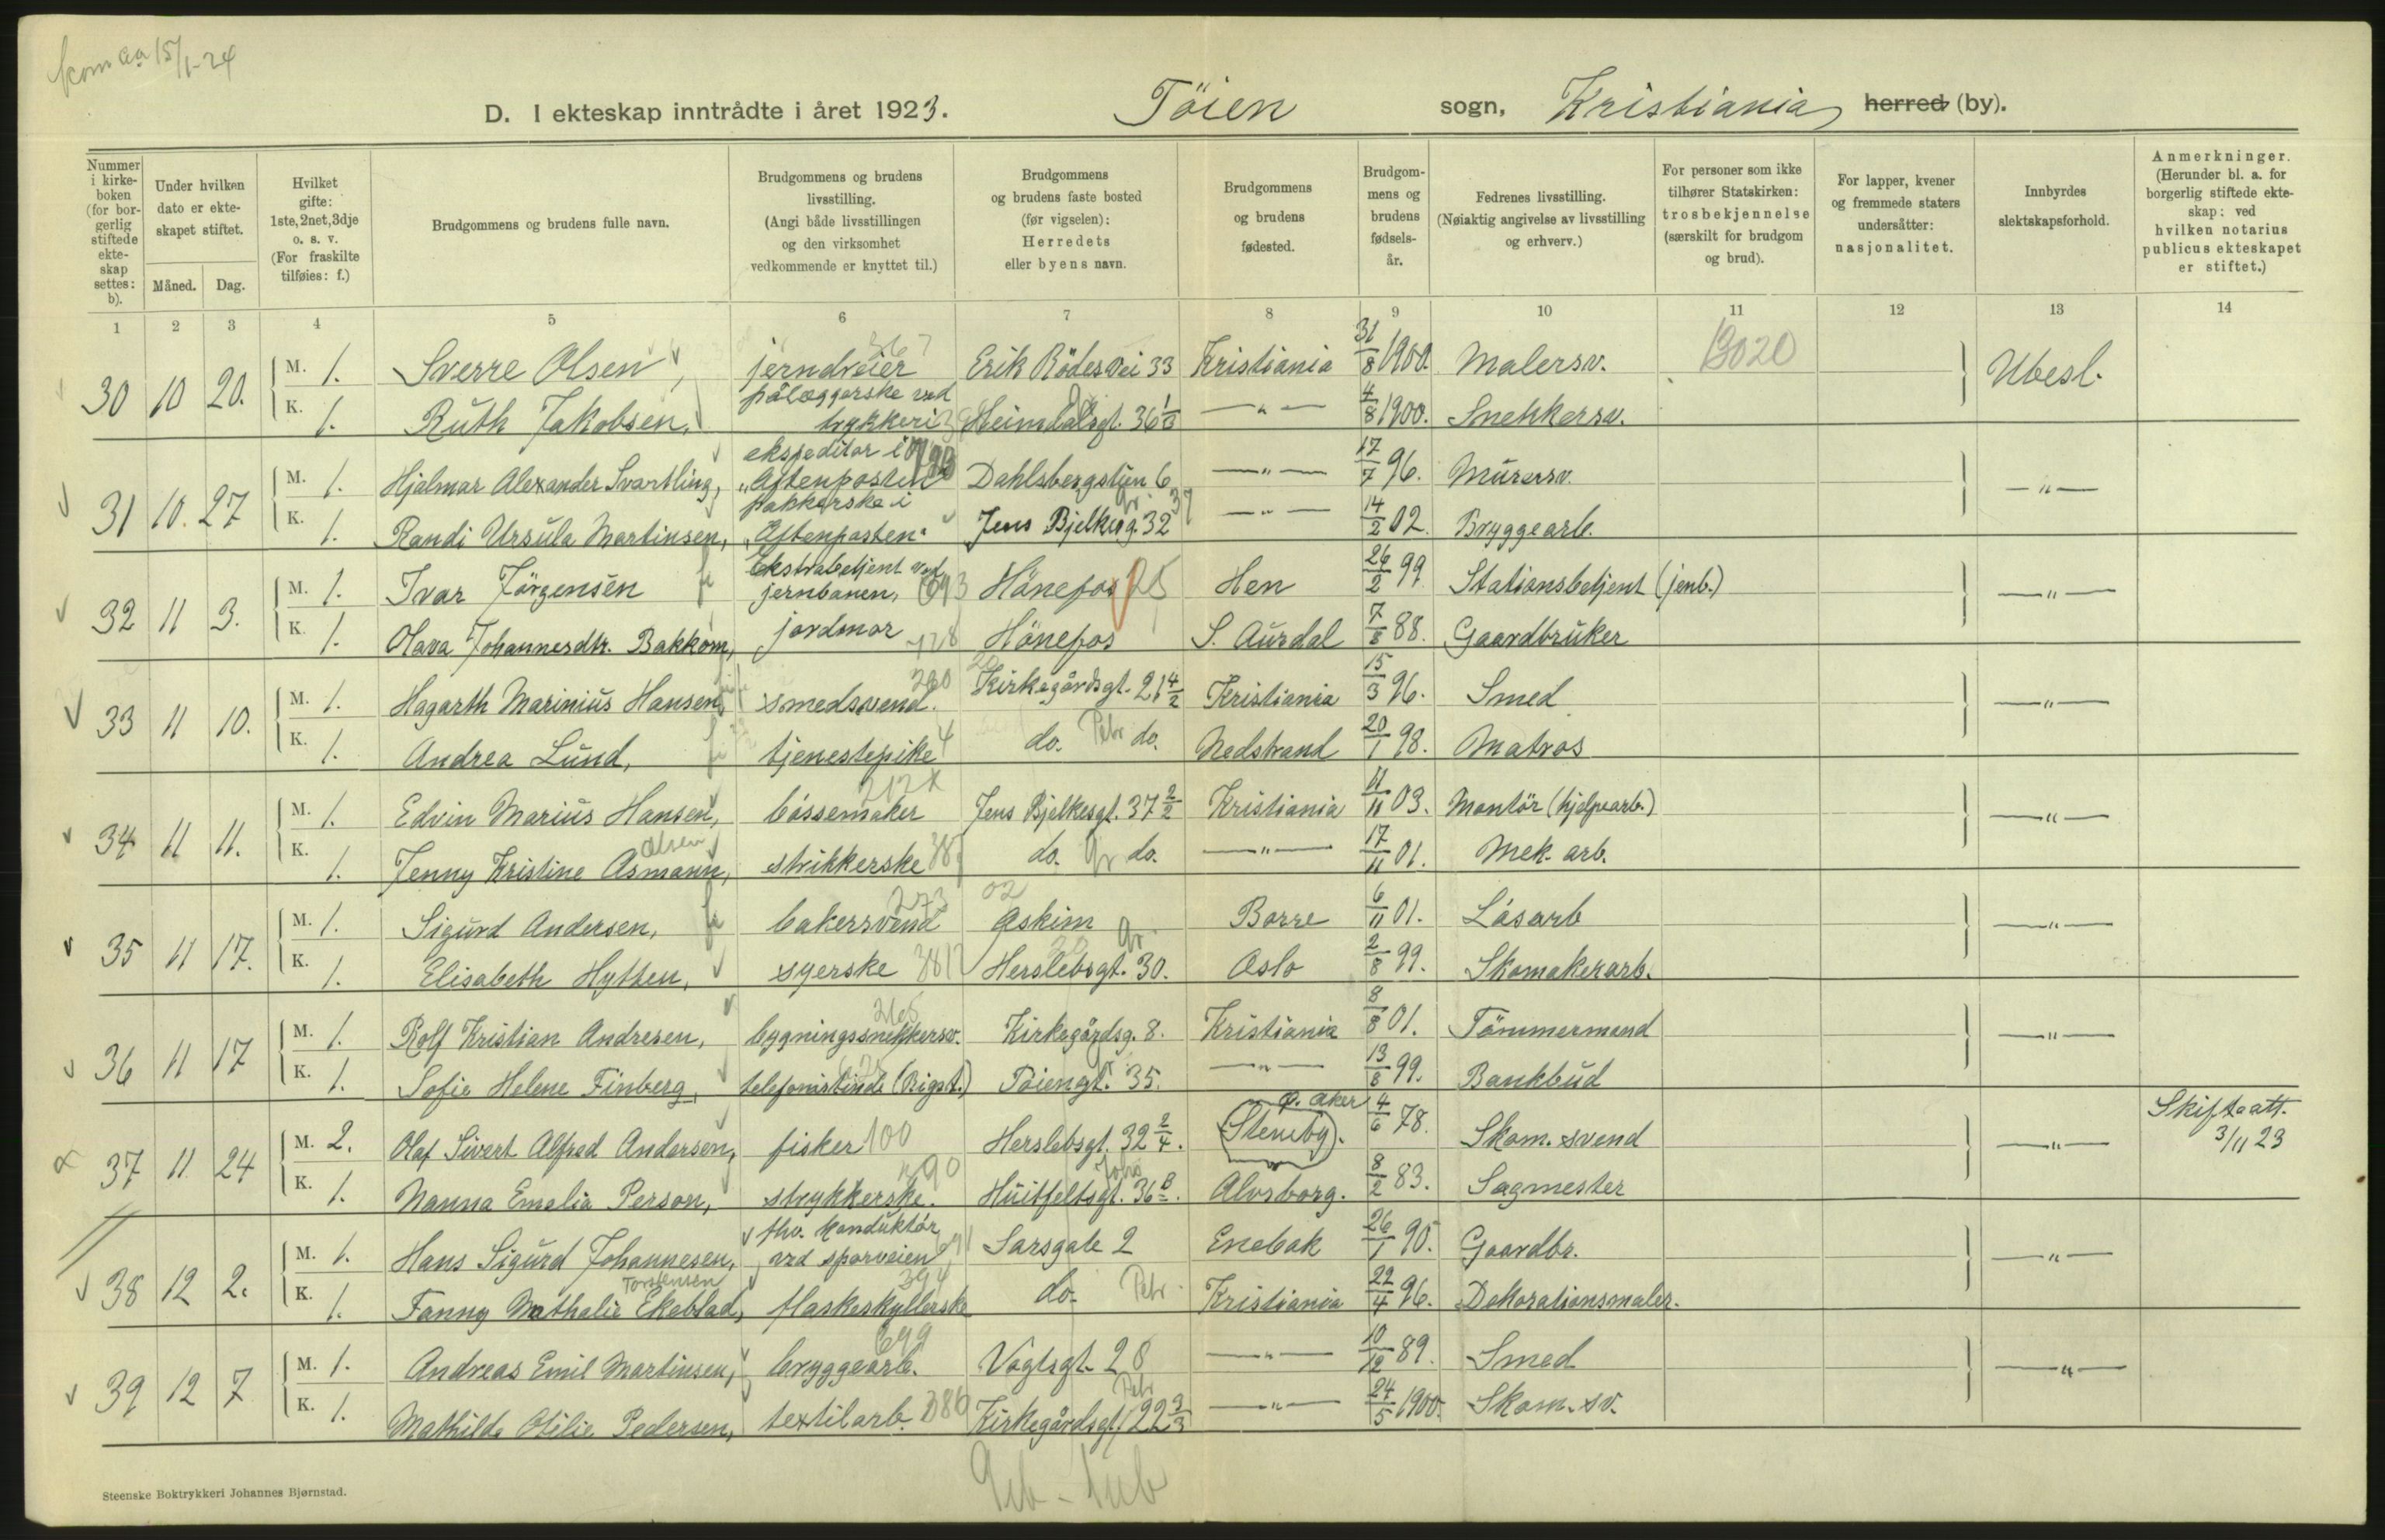 kom aa 15/1-24
D. I ekteskap inntrådte i året 1923. Töien sogn, Kristiania herred (by).
Nummer i kirke-boken (for bor-gerlig stiftede ekte-skap settes: b).
Under hvilken dato er ekte-skapet stiftet.
Måned. Dag.
Hvilket gifte: 1ste, 2net, 3dje o. s. v. (For fraskilte tilføies: f.)
Brudgommens og brudens fulle navn.
Brudgommens og brudens livsstilling. (Angi både livsstillingen og den virksomhet vedkommende er knyttet til.)
Brudgommens og brudens faste bosted (før vigselen): Herredets eller byens navn.
Brudgommens og brudens fødested.
Brudgom-mens og brudens fødsels-år.
Fedrenes livsstilling. (Nøiaktig angivelse av livsstilling og erhverv.)
For personer som ikke tilhører Statskirken: trosbekjennelse (særskilt for brudgom og brud).
For lapper, kvener og fremmede staters undersåtter: nasjonalitet.
Innbyrdes slektskapsforhold.
Anmerkninger. (Herunder bl. a. for borgerlig stiftede ekte-skap: ved hvilken notarius publicus ekteskapet er stiftet.)
1 2 3 4 5 6 7 8 9 10 11 12 13 14
30 10 20. M. 1. Sverre Olsen, jerndreier 367 Erik Rödesvei 33 Kristiania 31/8 1900. Malersv. 13020 Ubesl.
K. 1. Ruth Jakobsen, pålæggerske ved trykkeri Heimdalsgt. 36 — " — 4/8 1900. Snekkersv.
31 10. 27 M. 1. Hjalmar Alexander Svartling, ekspeditør i "Aftenposten" Dahlsbergstien 6 — " — 17/7 96. Murersv. — " —
K. 1. Randi Ursula Martinsen, pakkerske i "Aftenposten" Jens Bjelkesg. 32 — " — 14/2 02. Bryggearb.
32 11 3. M. 1. Ivar Jörgensen Ekstrabetjent ved jernbanen, Hönefos Hen 26/2 99 Stationsbetjent (jenb.) — " —
K. 1. Olava Johannesdtr. Bakkom, jordmor Hönefos S. Aurdal 7/8 88. Gaardbruker
33 11 10. M. 1. Hagarth Marinius Hansen, smedsvend. 260 Kirkegårdsgt. 21 4/2 Kristiania 15/3 96. Smed — " —
K. 1. Andrea Lund, tjenestepike 4 do. Petr do. Nedstrand 20/1 98. Matros
34 11 11. M. 1. Edvin Marius Hansen, bössemaker Jens Bjelkesgt. 37 2/2 Kristiania 11/11 03. Montör (hjelpearb.) — " —
K. 1. Jenny Kristine Asmann, Olsen strikkerske do. Gr do. — " — 17/11 01. Mek. arb.
35 11 17. M. 1. Sigurd Andersen, bakersvend 273 02 Askim Borre 6/11 01. Låsarb — " —
K. 1. Elisabeth Hytten, syerske Herslebsgt. 30. Gr. Oslo 2/8 99. Skomakerarb.
36 11 17 M. 1. Rolf Kristian Andresen, bygningssnekkersv. 265 Kirkegårdsg. 8. Kristiania 8/8 01. Tömmermand — " —
K. 1. Sofie Helene Finberg, telefonistinde (Rigst.) Töiengt. 35. — " — 13/8 99. Bankbud
37 11 24 M. 2. Olaf Sivert Alfred Andersen, fisker 100 Herslebsgt. 32 2/4. (Stenby). p. Aker 4/6 78. Skom. svend — " — Skifteatt. 3/11 23
K. 1. Nanna Emelia Person, strykkerske. Huitfeltsgt. 36 B. Alvsborg. 8/2 83. Sagmester
38 12 2. M. 1. Hans Sigurd Johannesen, fhv. konduktör ved sporveien Sarsgate 2 Enebak 26/1 90. Gaardbr. — " —
K. 1. Fanny Mathalie Ekeblad, Torstensen flaskeskyllerske 394 do. Petr. Kristiania 22/4 96. Dekorationsmaler.
39 12 7 M. 1. Andreas Emil Martinsen, bryggearb. 699 Vogtsgt. 28 — " — 10/12 89. Smed — " —
K. 1. Mathilde Otilie Pedersen, textilarb. Kirkegårdsgt. 22 3/3 Petr — " — 24/5 1900. Skom. sv.
Steenske Boktrykkeri Johannes Bjørnstad.